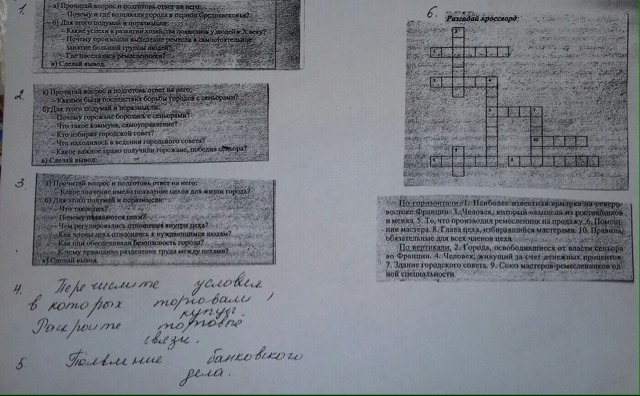 1.
а) Прочитай вопрос и подготовь ответ на него:
– Почему и где возникали города в период Средневековья?
б) Для этого подумай и поразмысли:
– Какие успехи в развитии хозяйства появились у людей к X веку?
– Почему произошло выделение ремесла в самостоятельное
занятие большой группы людей?
– Где поселялись ремесленники?
в) Сделай вывод.
2.
а) Прочитай вопрос и подготовь ответ на него:
– Какими были последствия борьбы городов с сеньорами?
б) Для этого подумай и поразмысли:
– Почему горожане боролись с сеньорами?
– Что такое коммуна, самоуправление?
– Кто избирал городской совет?
– Что находилось в ведении городского совета?
– Какое важное право получили горожане, победив сеньора?
в) Сделай вывод.
3.
а) Прочитай вопрос и подготовь ответ на него:
– Какое значение имело появление цехов для жизни города?
б) Для этого подумай и поразмысли:
– Что такое цех?
– Почему появляются цехи?
– Чем регулировались отношения внутри цеха?
– Как члены цеха относились к нуждающимся людям?
– Как они обеспечивали безопасность города?
– К чему приводило разделение труда между цехами?
в) Сделай вывод.
4. Перечислите условия
в которых торговали,
купцы.
Раскройте торговые
связи.
5 Появление банковского
дела.
6. Разгадай кроссворд
По горизонтали: 1. Наиболее известная ярмарка на северо-
востоке Франции. 3. Человек, который вышел из ростовщиков
и менял. 5. То, что производил ремесленник на продажу. 6. Помощ-
ник мастера. 8. Глава цеха, избиравшийся мастерами. 10. Правила,
обязательные для всех членов цеха.
По вертикали: 2. Города, освободившиеся от власти сеньора
во Франции. 4. Человек, живущий за счет денежных процентов.
7. Здание городского совета. 9. Союз мастеров-ремесленников од-
ной специальности.